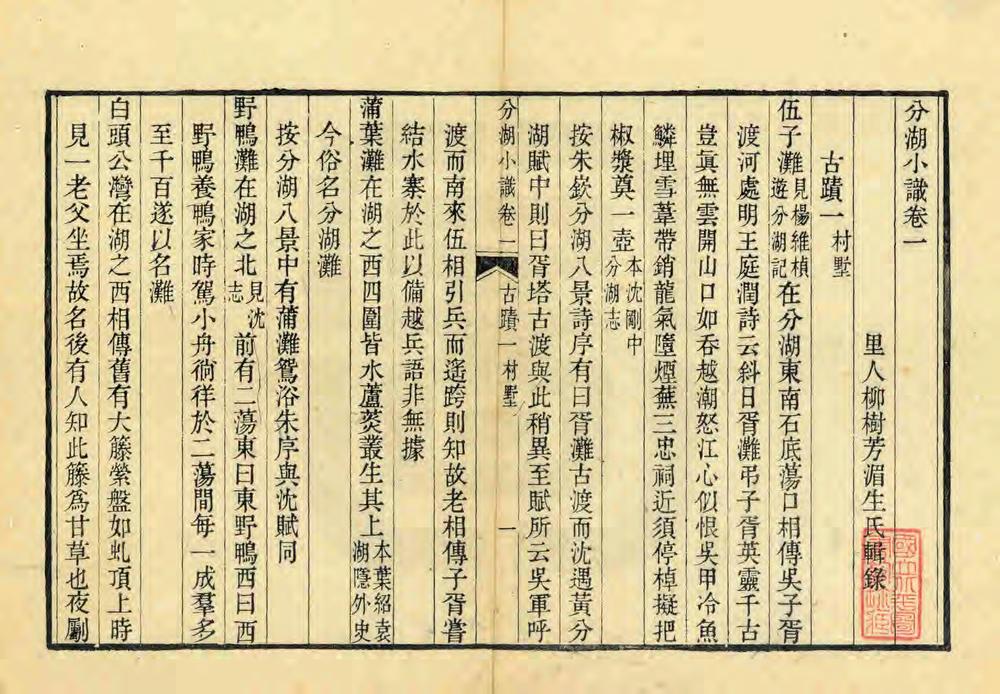 分湖小識卷一
里人柳樹芳湄生氏輯錄
古蹟一村墅
伍子灘見楊維楨遊分湖記在分湖東南石底蕩口相傳吳子胥
渡河處明王庭潤詩云斜日胥灘弔子胥英靈千古
豈眞無雲開山口如吞越潮怒江心似恨吳甲冷魚
鱗埋雪葦帶銷龍氣墮煙蕪三忠祠近須停棹擬把
椒漿奠一壺本沈剛中分湖志
按朱嶔分湖八景詩序有曰胥灘古渡而沈遇黃分
湖賦中則曰胥塔古渡與此稍異至賦所云吳軍呼
分湖小識卷一 古蹟一村墅 一
渡而南來伍相引兵而遙跨則知故老相傳子胥嘗
結水寨於此以備越兵語非無據
蒲葉灘在湖之西四圍皆水蘆葵叢生其上本葉紹袁湖隱外史
今俗名分湖灘
按分湖八景中有蒲灘鴛浴朱序與沈賦同
野鴨灘在湖之北見沈志前有二蕩東曰東野鴨西曰西
野鴨養鴨家時駕小舟徜徉於二蕩間每一成羣多
至千百遂以名灘
白頭公灣在湖之西相傳舊有大籐縈盤如虬頂上時
見一老父坐焉故名後有人知此籐爲甘草也夜劚